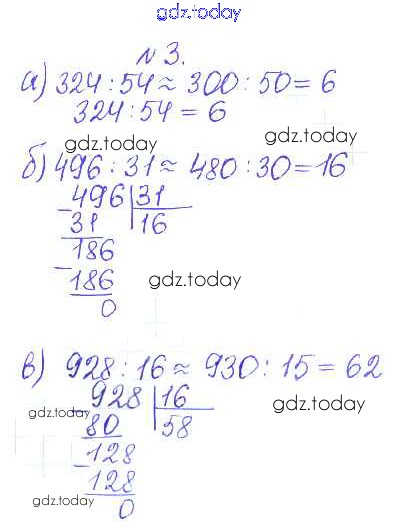 gdz.today
N 3.
а) 324 : 54 ≈ 300 : 50 = 6
324 : 54 = 6
gdz.today
gdz.today
б) 496 : 31 ≈ 480 : 30 = 16
496 | 31
31 | 16
186
gdz.today
186
0
в) 928 : 16 ≈ 930 : 15 = 62
928 | 16
gdz.today
gdz.today
80 | 58
128
gdz.today
128
0